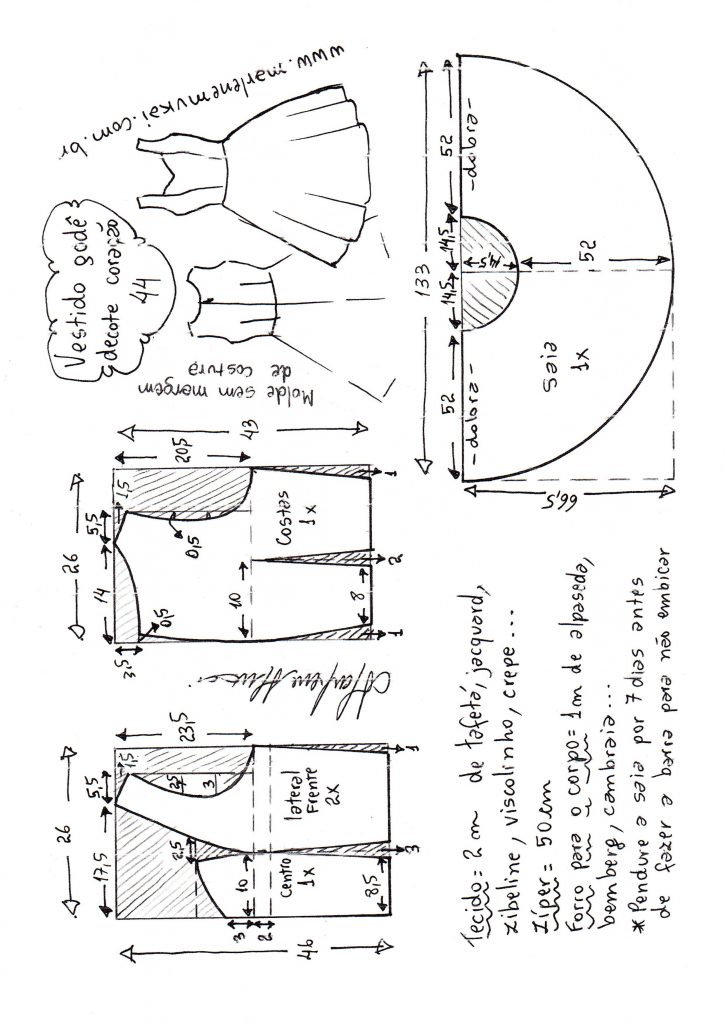 www.marlenemukai.com.br
Vestido godê
decote coração
44
Molde sem margem
de costura
26
17,5
5,5
1,5
23,5
2,5
3
2,5
10
3
2
Centro
1x
lateral
Frente
2x
8,5
3
1
46
26
14
5,5
1,5
20,5
3,5
0,5
0,5
10
Costas
1x
8
1
2
1
43
133
52
14,5
14,5
52
-dobra-
-dobra-
14,5
52
Saia
1x
66,5
Tecido = 2 m de tafetá, jacquard,
zibeline, viscolinho, crepe...
Zíper = 50 cm
Forro para o corpo = 1m de alpaseda,
bemberg, cambraia...
*Pendure a saia por 7 dias antes
de fazer a barra para não embicar